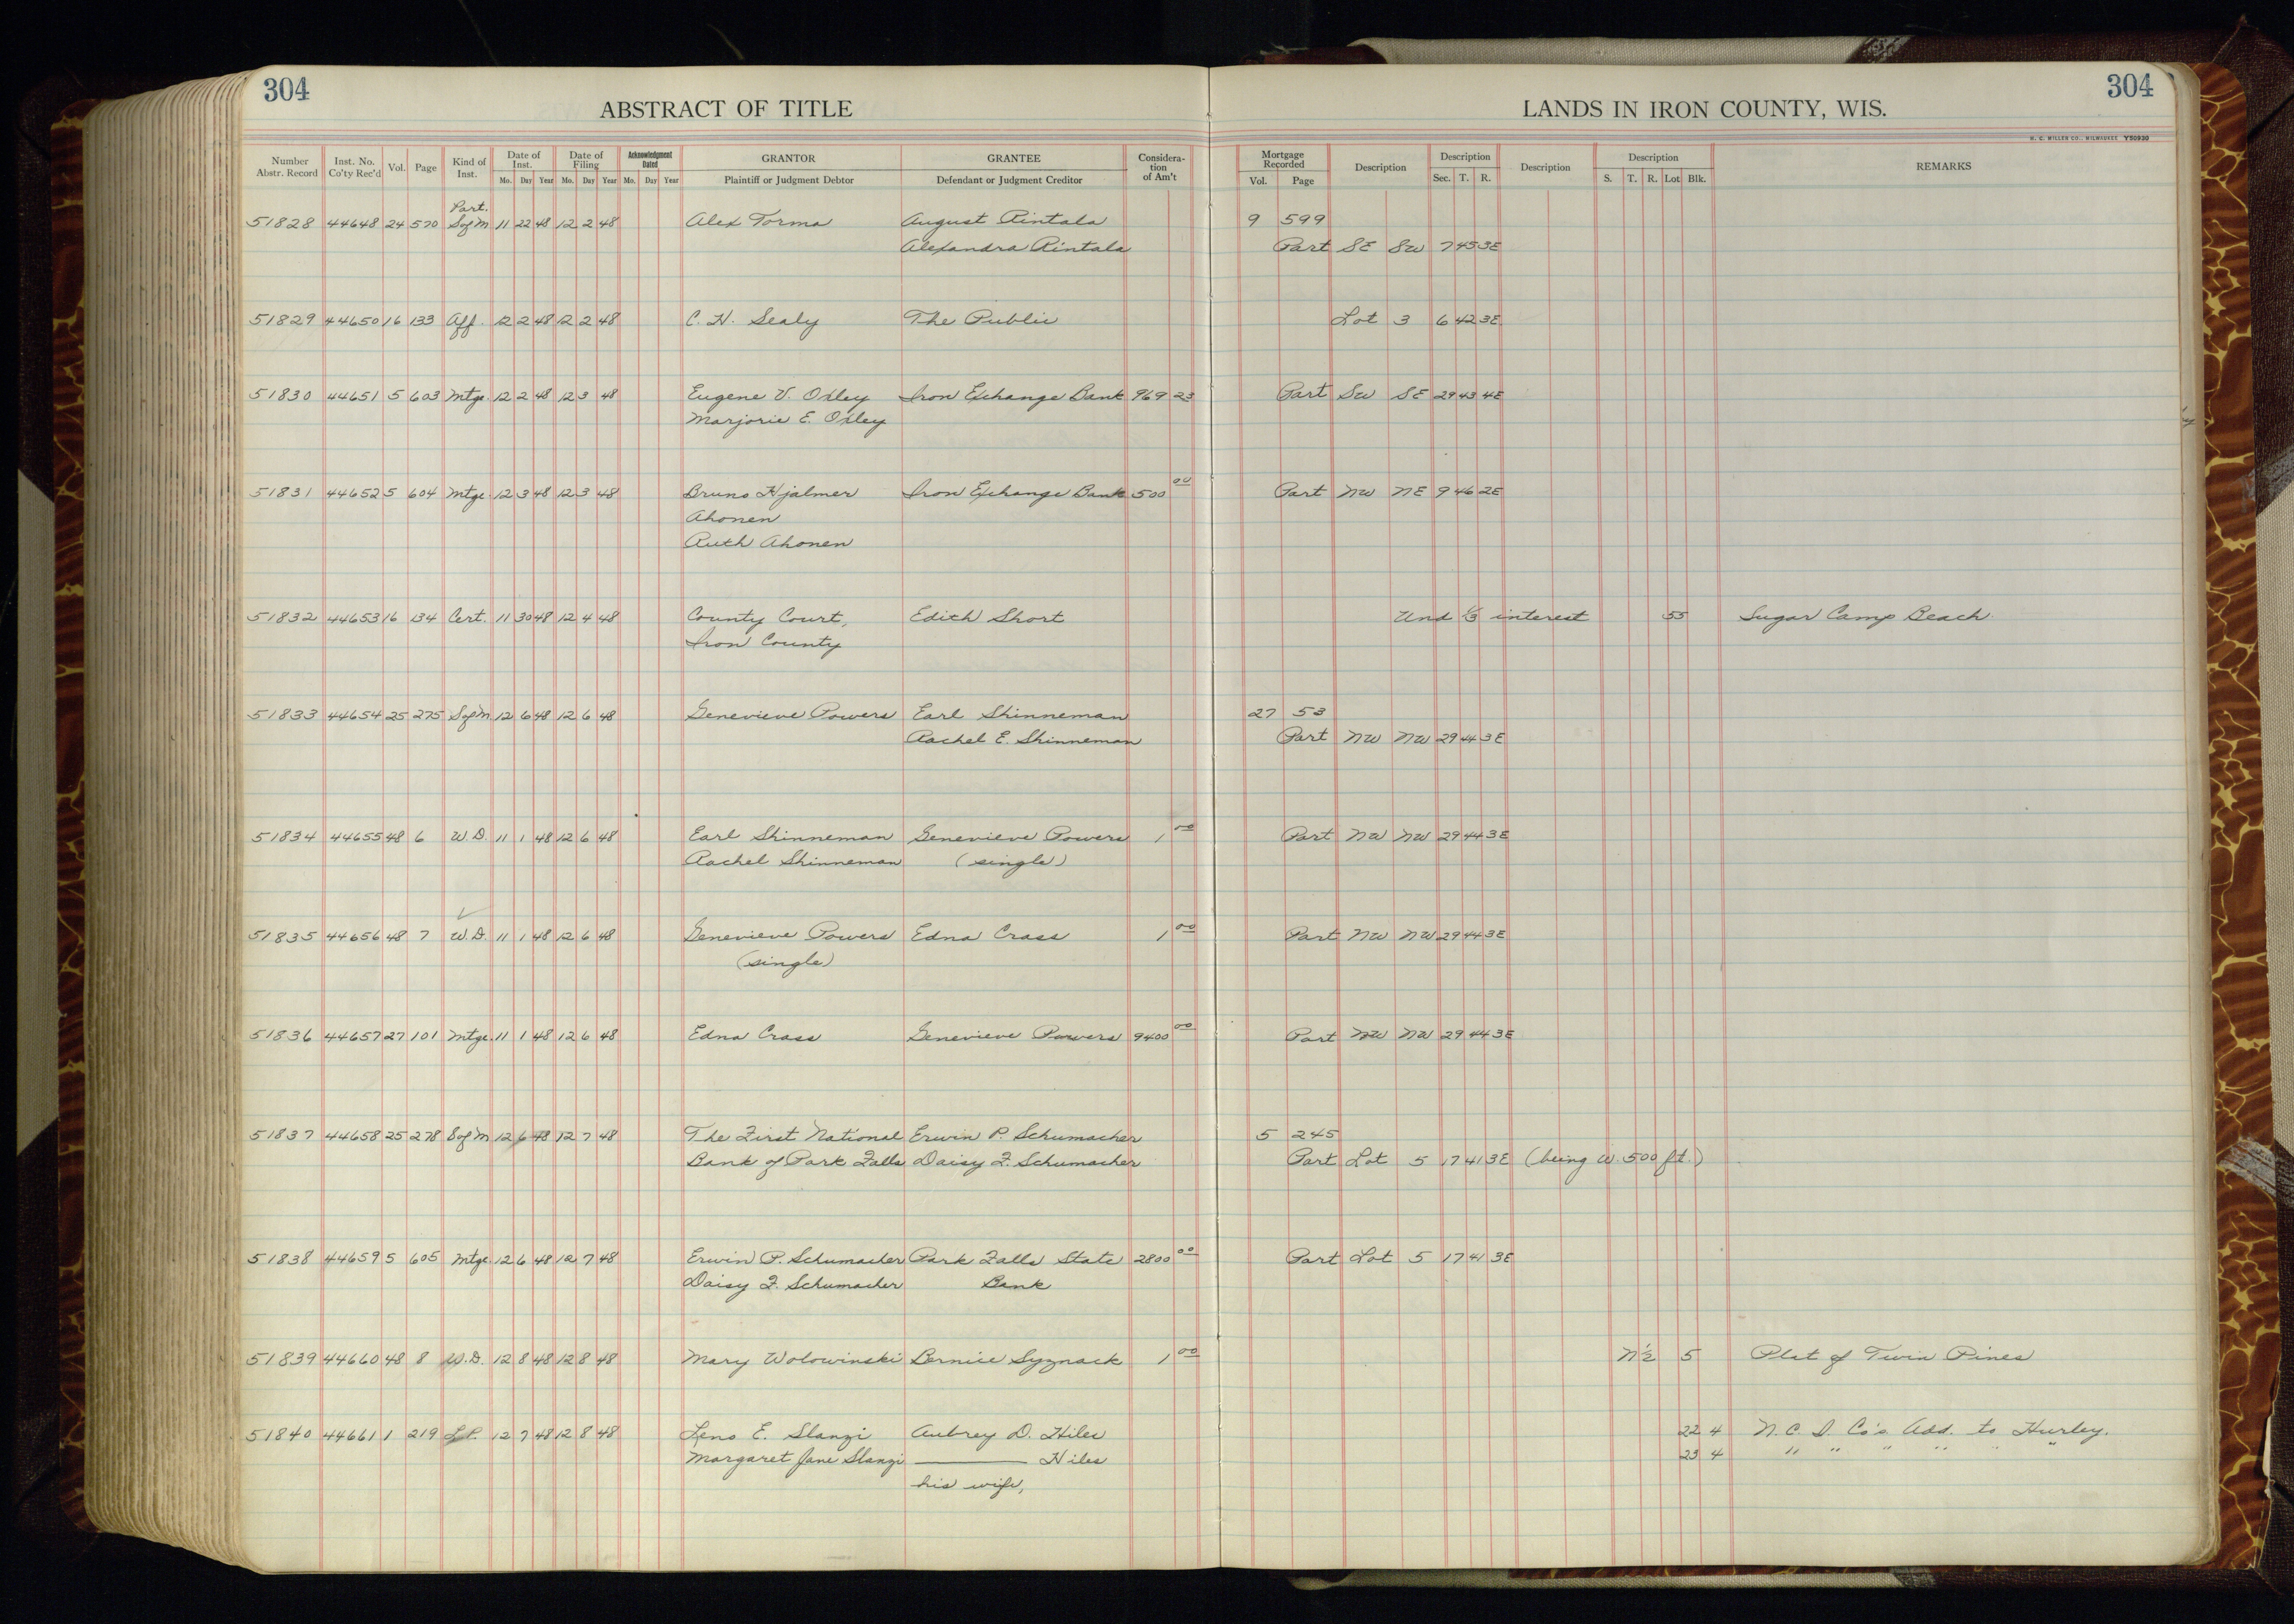 304 304
ABSTRACT OF TITLE LANDS IN IRON COUNTY, WIS.
H. C. MILLER CO., MILWAUKEE Y50930
Number Abstr. Record Inst. No. Co'ty Rec'd Vol. Page Kind of Inst. Date of Inst. Date of Filing Acknowledgment Dated GRANTOR GRANTEE Consideration of Am't Mortgage Recorded Description Description Description Description REMARKS
Mo. Day Year Mo. Day Year Mo. Day Year Plaintiff or Judgment Debtor Defendant or Judgment Creditor Vol. Page Sec. T. R. S. T. R. Lot Blk.
Part.
51828 44648 24 570 S of M 11 22 48 12 2 48 Alex Torma August Rintala 9 599
Alexandra Rintala Part SE SW 7 45 3E
51829 44650 16 133 Aff. 12 2 48 12 2 48 C. H. Sealy The Public Lot 3 6 42 3E
51830 44651 5 603 Mtge. 12 2 48 12 3 48 Eugene V. Oxley Iron Exchange Bank 969 23 Part SW SE 29 43 4E
Marjorie E. Oxley
51831 44652 5 604 Mtge. 12 3 48 12 3 48 Bruno Hjalmer Iron Exchange Bank 500 00 Part NW NE 9 46 2E
Ahonen
Ruth Ahonen
51832 44653 16 134 Cert. 11 30 48 12 4 48 County Court, Edith Short Und 1/3 interest 55 Sugar Camp Beach
Iron County
51833 44654 25 275 S of M 12 6 48 12 6 48 Genevieve Powers Earl Shinneman 27 53
Rachel E. Shinneman Part NW NW 29 44 3E
51834 44655 48 6 W.D. 11 1 48 12 6 48 Earl Shinneman Genevieve Powers 1 00 Part NW NW 29 44 3E
Rachel Shinneman (single)
51835 44656 48 7 W.D. 11 1 48 12 6 48 Genevieve Powers Edna Crass 1 00 Part NW NW 29 44 3E
(single)
51836 44657 27 101 Mtge. 11 1 48 12 6 48 Edna Crass Genevieve Powers 9400 00 Part NW NW 29 44 3E
51837 44658 25 278 S of M 12 6 48 12 7 48 The First National Erwin P. Schumacher 5 245
Bank of Park Falls Daisy F. Schumacher Part Lot 5 17 41 3E (being W. 500 ft.)
51838 44659 5 605 Mtge. 12 6 48 12 7 48 Erwin P. Schumacher Park Falls State 2800 00 Part Lot 5 17 41 3E
Daisy F. Schumacher Bank
51839 44660 48 8 W.D. 12 8 48 12 8 48 Mary Wolowinski Bernice Syznack 1 00 N 1/2 5 Plat of Twin Pines
51840 44661 1 219 L.P. 12 7 48 12 8 48 Leno E. Slanzi Aubrey D. Hiles 22 4 N. C. I. Co's Add. to Hurley.
Margaret Jane Slanzi Hiles 23 4 " " " " " "
his wife,